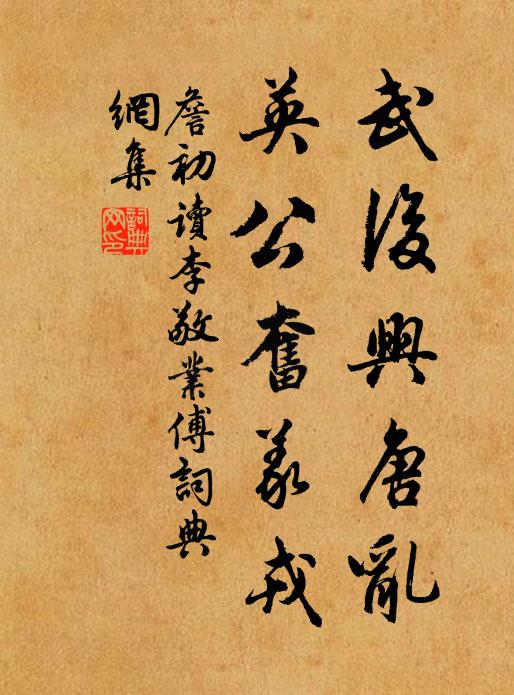 武後興唐亂
英公奮義戎
詹初讀李敬業傅詞典
網集
詞典網印